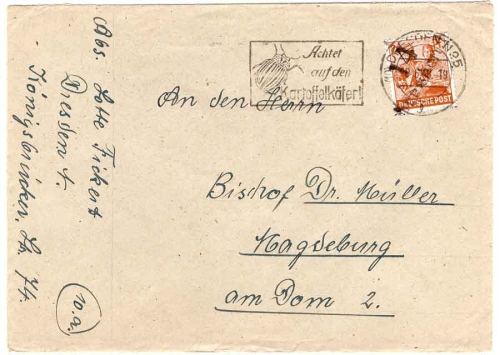 Achtet
auf den
Kartoffelkäfer!
DRESDEN N 25
DEUTSCHE POST
An den Herrn
Bischof Dr. Müller
Magdeburg
am Dom 2.
Abs. Lotte Fickert
Dresden
Königsbrücker. Str. 74.
10.a.